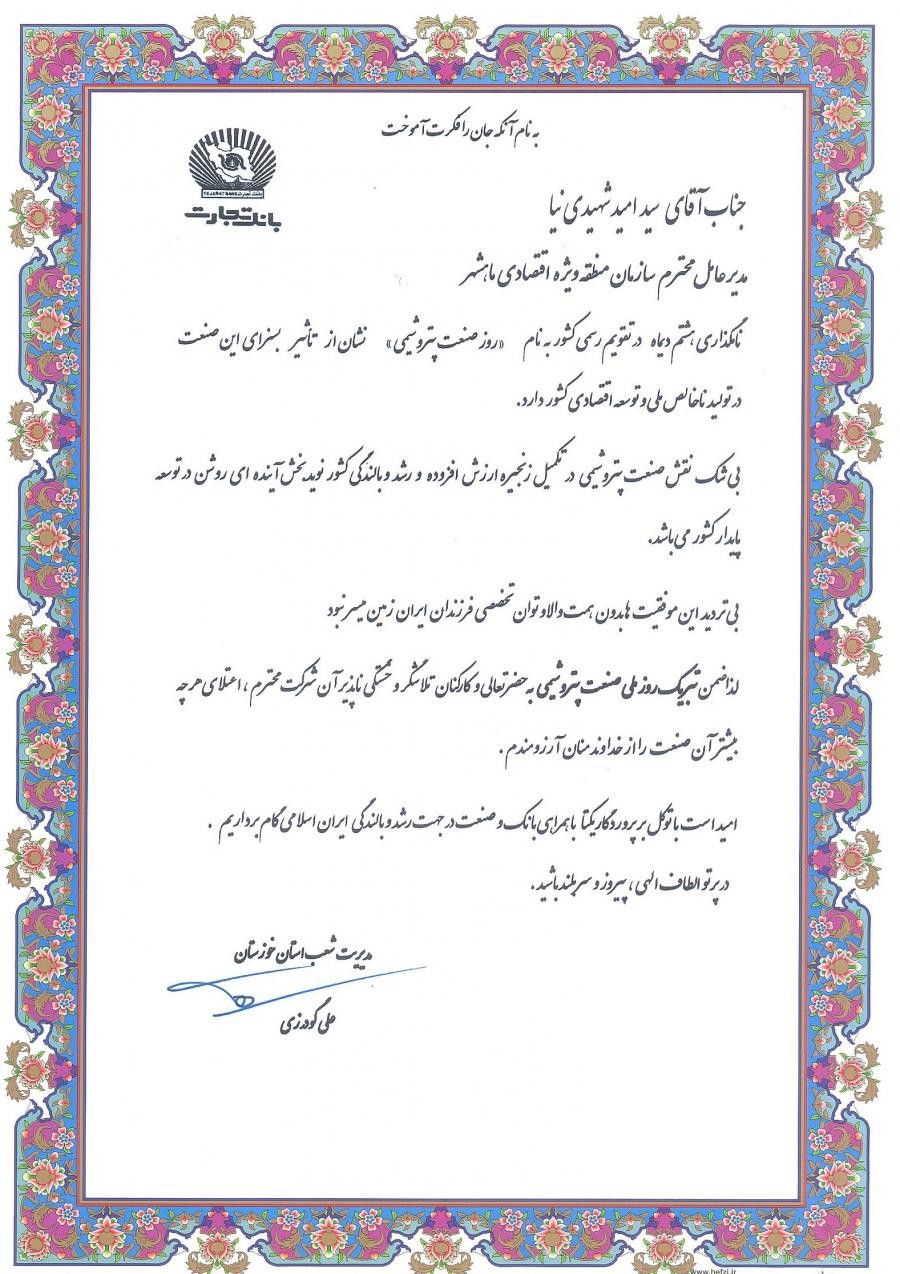 به نام آنکه جان را فکرت آموخت
TEJARAT BANK بانک تجارت
بانک تجارت
جناب آقای سید امید شهیدی نیا
مدیرعامل محترم سازمان منطقه ویژه اقتصادی ماهشهر
نامگذاری هشتم دیماه در تقویم رسمی کشور به نام «روز صنعت پتروشیمی» نشان از تأثیر بسزای این صنعت
در تولید ناخالص ملی و توسعه اقتصادی کشور دارد.
بی شک نقش صنعت پتروشیمی در تکمیل زنجیره ارزش افزوده و رشد و بالندگی کشور نویدبخش آینده ای روشن در توسعه
پایدار کشور می باشد.
بی تردید این موفقیت ها بدون همت والا و توان تخصصی فرزندان ایران زمین میسر نبود
لذا ضمن تبریک روز ملی صنعت پتروشیمی به حضرتعالی و کارکنان تلاشگر و خستگی ناپذیر آن شرکت محترم ، اعتلای هرچه
بیشتر آن صنعت را از خداوند منان آرزومندم .
امید است با توکل بر پروردگار یکتا با همراهی بانک و صنعت در جهت رشد و بالندگی ایران اسلامی گام برداریم .
در پرتو الطاف الهی ، پیروز و سربلند باشید .
مدیریت شعب استان خوزستان
علی گودرزی
www.hefzi.ir